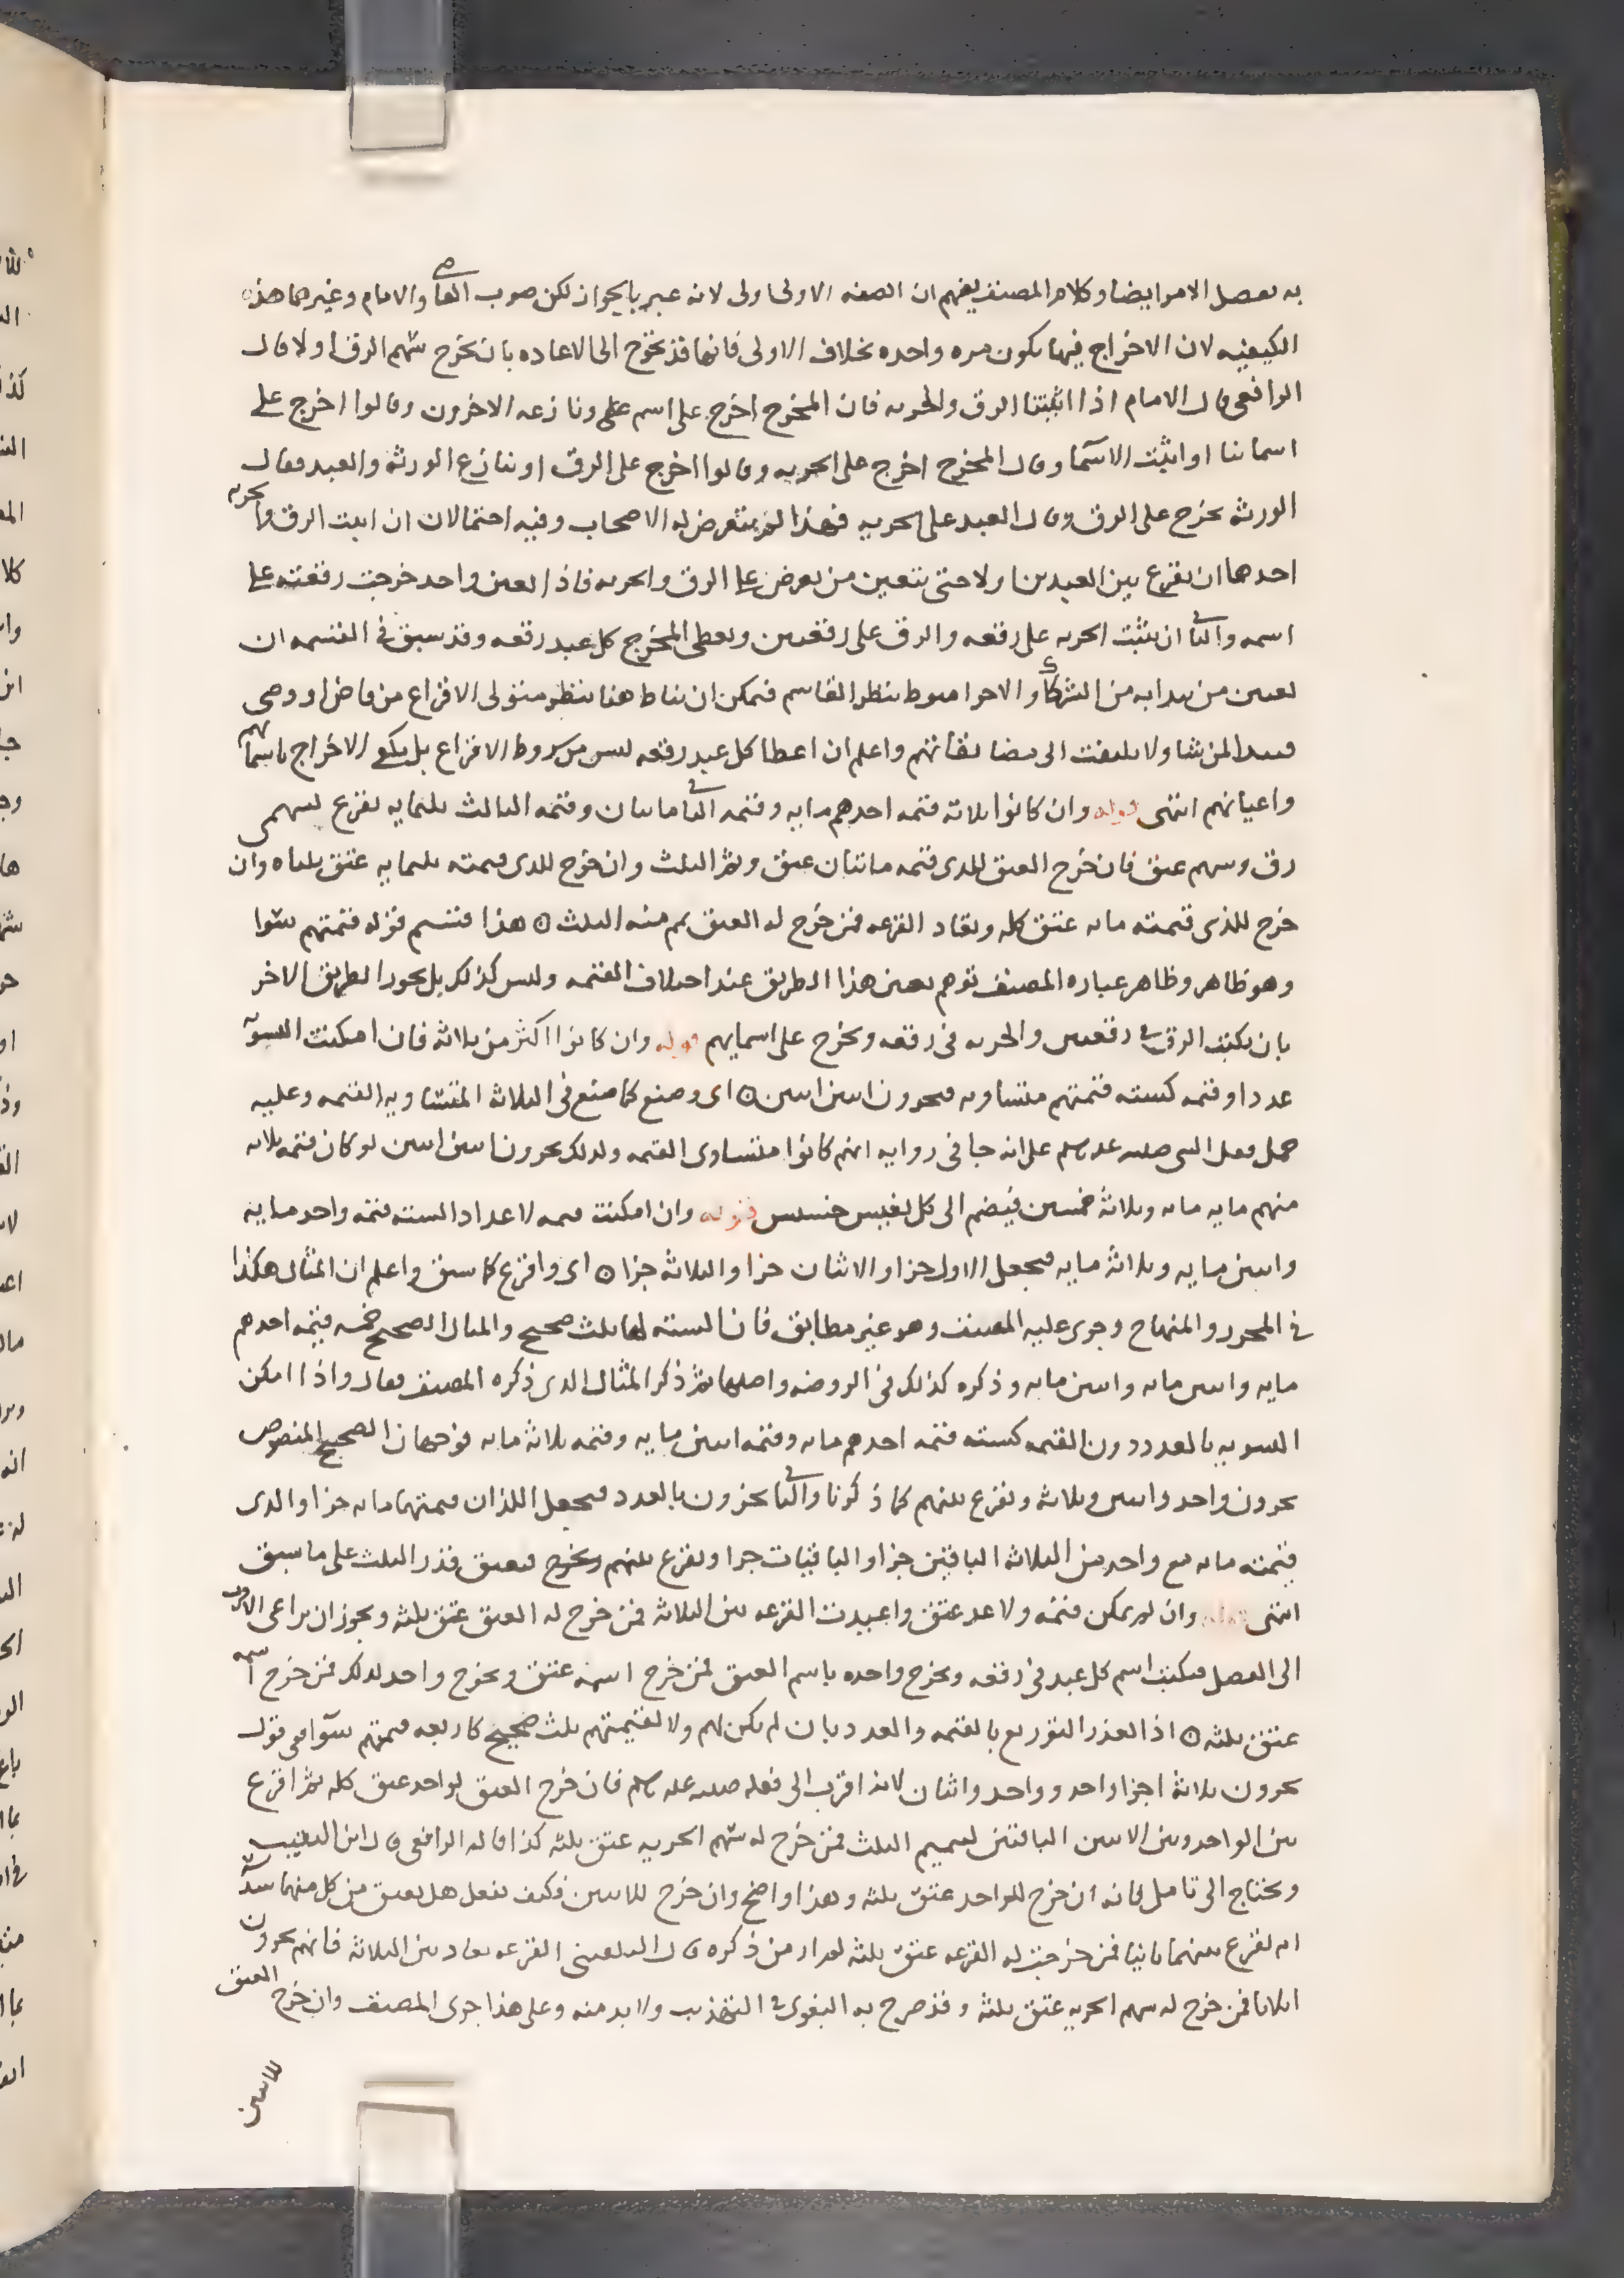 به يحصل الامر ايضا وكلام المصنف يفهم ان الصفه الاولى اولى لانه عبر بالجواز لكن صوب القاضي والامام وغيرهما هذه
الكيفيه لان الاخراج فيها يكون مره واحده بخلاف الاولى فانها قد تحوج الى الاعاده بان يخرج سهم الرق اولا قال
الرافعي قال الامام اذا اثبتنا الرق والحريه فان المخرج اخرج على اسم ونازعه الاخرون وقالوا اخرج على
اسماينا او اثبت الاسما وقال المخرج اخرج على الحريه وقالوا اخرج على الرق او تنازع الورثه والعبيد فقال
الورثه نخرج على الرق وقال العبيد على الحريه فهذا لم يتعرض له الاصحاب وفيه احتمالان ان اثبت الرق والحريه
احدهما ان يقرع بين العبيد من اولا حتى يتعين من يعرض على الرق والحريه فاذا تعين واحد خرجت رقعته على
اسمه والثاني ان يثبت الحريه على رقعه والرق على رقعتين ويعطى المخرج كل عبد رقعه وقد سبق في القسمه ان
تعيين من يبدا به من الشركا والاجزا منوط بنظر القاسم فيمكن ان يناط هنا بنظر متولى الاقراع من قاض او وصى
فيبدا لمن شا ولا يلتفت الى مضايقاتهم واعلم ان اعطا كل عبد رقعه ليس من شروط الاقراع بل يكفي الاخراج باسمايهم
واعيانهم انتهى قوله وان كانوا ثلاثه قيمه احدهم مايه وقيمه الثاني مايتان وقيمه الثالث ثلثمايه يقرع بسهمي
رق وسهم عتق فان خرج العتق للذي قيمته مائتان عتق وتم الثلث وان خرج للذي قيمته ثلثمايه عتق ثلثاه وان
خرج للذي قيمته مايه عتق كله وتعاد القرعه فمن خرج له العتق تمم منه الثلث ه هذا قسيم قوله قيمتهم سوا
وهو ظاهر وظاهر عباره المصنف توهم تعين هذا الطريق عند اختلاف القيمه وليس كذلك بل يجوز الطريق الاخر
بان يكتب الرق في رقعتين والحريه في رقعه ويخرج على اسمايهم قوله وان كانوا اكثر من ثلاثه فان امكنت التسويه
عددا وقيمه كسته قيمتهم متساويه فيجزون اثنين اثنين ه اى وصنع كما صنع في الثلاثه المتساويه القيمه وعليه
حمل فعل النبي صلى الله عليه وسلم على انه جا في روايه انهم كانوا متساوى القيمه ولذلك يجزون اثنين اثنين لو كان قيمه ثلاثه
منهم مايه مايه وثلاثه خمسين فيضم الى كل نفيس خسيس قوله وان امكنت قيمه لا عددا لسته قيمه واحد مايه
واثنين مايه وثلاثه مايه فيجعل الاول جزا والاثنان جزا والثلاثه جزا ه اى واقرع كما سبق واعلم ان المثال هكذا
في المحرر والمنهاج وجرى عليه المصنف وهو غير مطابق فان السته لها ثلث صحيح والمثال الصحيح خمسه قيمه احدهم
مايه واثنين مايه واثنين مايه وذكره كذلك في الروضه واصلها ثم ذكر المثال الذي ذكره المصنف فقال واذا امكن
التسويه بالعدد دون القيمه كسته قيمه احدهم مايه وقيمه اثنين مايه وقيمه ثلاثه مايه فوجهان الصحيح المنصوص
يجزون واحد واثنين وثلاثه ويقرع بينهم كما ذكرنا والثاني يجزون بالعدد فيجعل اللذان قيمتهما مايه جزا والذي
قيمته مايه مع واحد من الثلاثه الباقين جزا والباقيات جزا ويقرع بينهم ويخرج فيعتق قدر الثلث على ما سبق
انتهى قوله وان لم يمكن قيمه ولا عد عتق واعيدت القرعه بين الثلاثه فمن خرج له العتق عتق ثلثه ويجوز ان يراعى الاقرب
الى الفصل فيكتب اسم كل عبد في رقعه ويخرج واحده باسم العتق فمن خرج اسمه عتق ويخرج واحد لذلك فمن خرج اسمه
عتق ثلثه ه اذا تعذر التوزيع بالقيمه والعدد بان لم يكن لهم ولا لقيمتهم ثلث صحيح كاربعه قيمتهم سوا ففي قول
يجزون ثلاثه اجزا واحد وواحد واثنان لانه اقرب الى فعله صلى الله عليه وسلم فان خرج العتق لواحد عتق كله ثم اقرع
بين الواحد وبين الاثنين الباقيين لتتميم الثلث فمن خرج له سهم الحريه عتق ثلثه كذا قاله الرافعي قال ابن النقيب
ويحتاج الى تامل فانه ان خرج للواحد عتق ثلثه وهذا واضح وان خرج للاثنين فكيف نفعل هل يعتق من كل منهما سدسه
ام يقرع بينهما ثانيا فمن خرجت له القرعه عتق ثلثه لم ار من ذكره قال البلقيني القرعه تعاد بين الثلاثه فانهم يجزون
اثلاثا فمن خرج له سهم الحريه عتق ثلثه وقد صرح به البغوي في التهذيب ولا بد منه وعلى هذا جرى المصنف وان خرج العتق
للاثنين